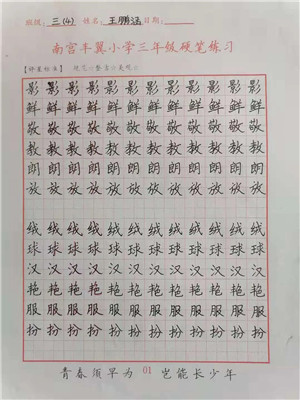 班级: 三(4) 姓名: 王鹏涵 日期:
南宫丰翼小学三年级硬笔练习
【评星标准】 规范☆整齐☆美观☆
影影影影影影影影影影影影
鲜鲜鲜鲜鲜鲜鲜鲜鲜鲜鲜鲜
敬敬敬敬敬敬敬敬敬敬敬敬
教教教教教教教教教教教教
朗朗朗朗朗朗朗朗朗朗朗朗
放放放放放放放放放放放放
绒绒绒绒绒绒绒绒绒绒绒绒
球球球球球球球球球球球球
汉汉汉汉汉汉汉汉汉汉汉汉
艳艳艳艳艳艳艳艳艳艳艳艳
服服服服服服服服服服服服
扮扮扮扮扮扮扮扮扮扮扮扮
青春须早为 01 岂能长少年